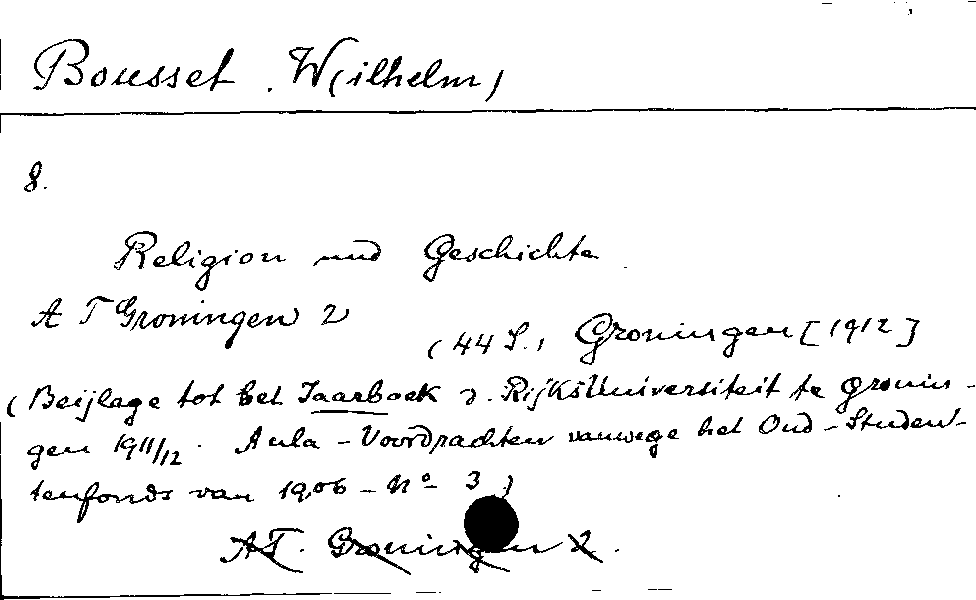 Bousset. W(ilhelm)
8.
Religion und Geschichte
A T Groningen 2
(44 S., Groningen [1912]
(Beijlage tot het Jaarboek d. RijksUniversiteit te Gronin-
gen 1911/12. Aula-Voordrachten vanwege het Oud-Studen-
tenfonds van 1906 - No 3)
AT. Groningen 2.